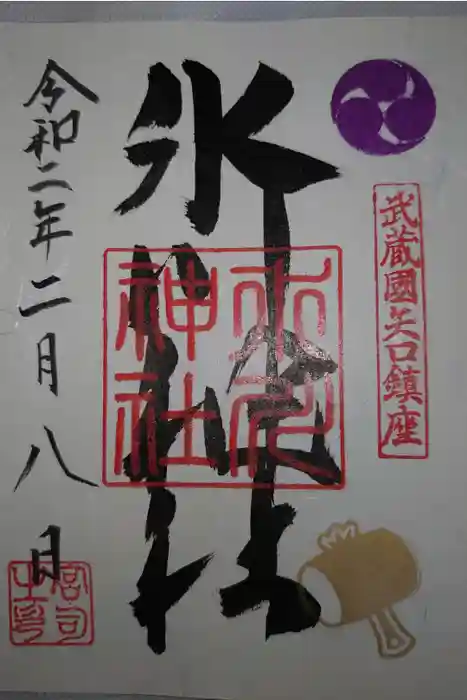 武蔵國矢口鎮座
氷川神社
氷川
神社
令和二年二月八日
宮司
之印